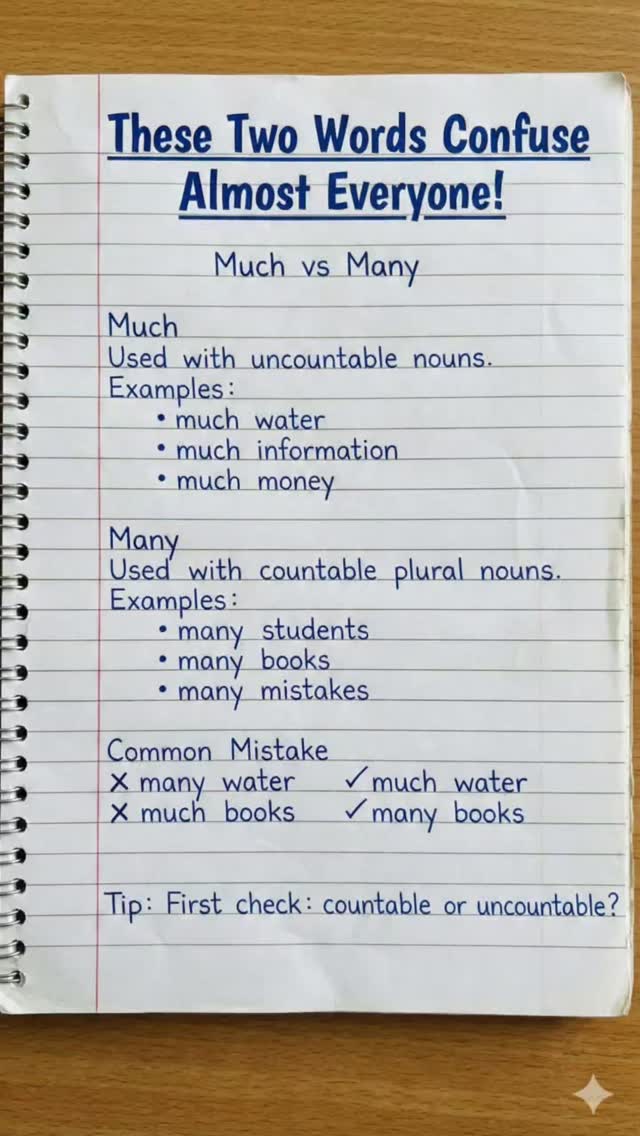 These Two Words Confuse
Almost Everyone!
Much vs Many
Much
Used with uncountable nouns.
Examples:
• much water
• much information
• much money
Many
Used with countable plural nouns.
Examples:
• many students
• many books
• many mistakes
Common Mistake
✗ many water ✓ much water
✗ much books ✓ many books
Tip: First check: countable or uncountable?